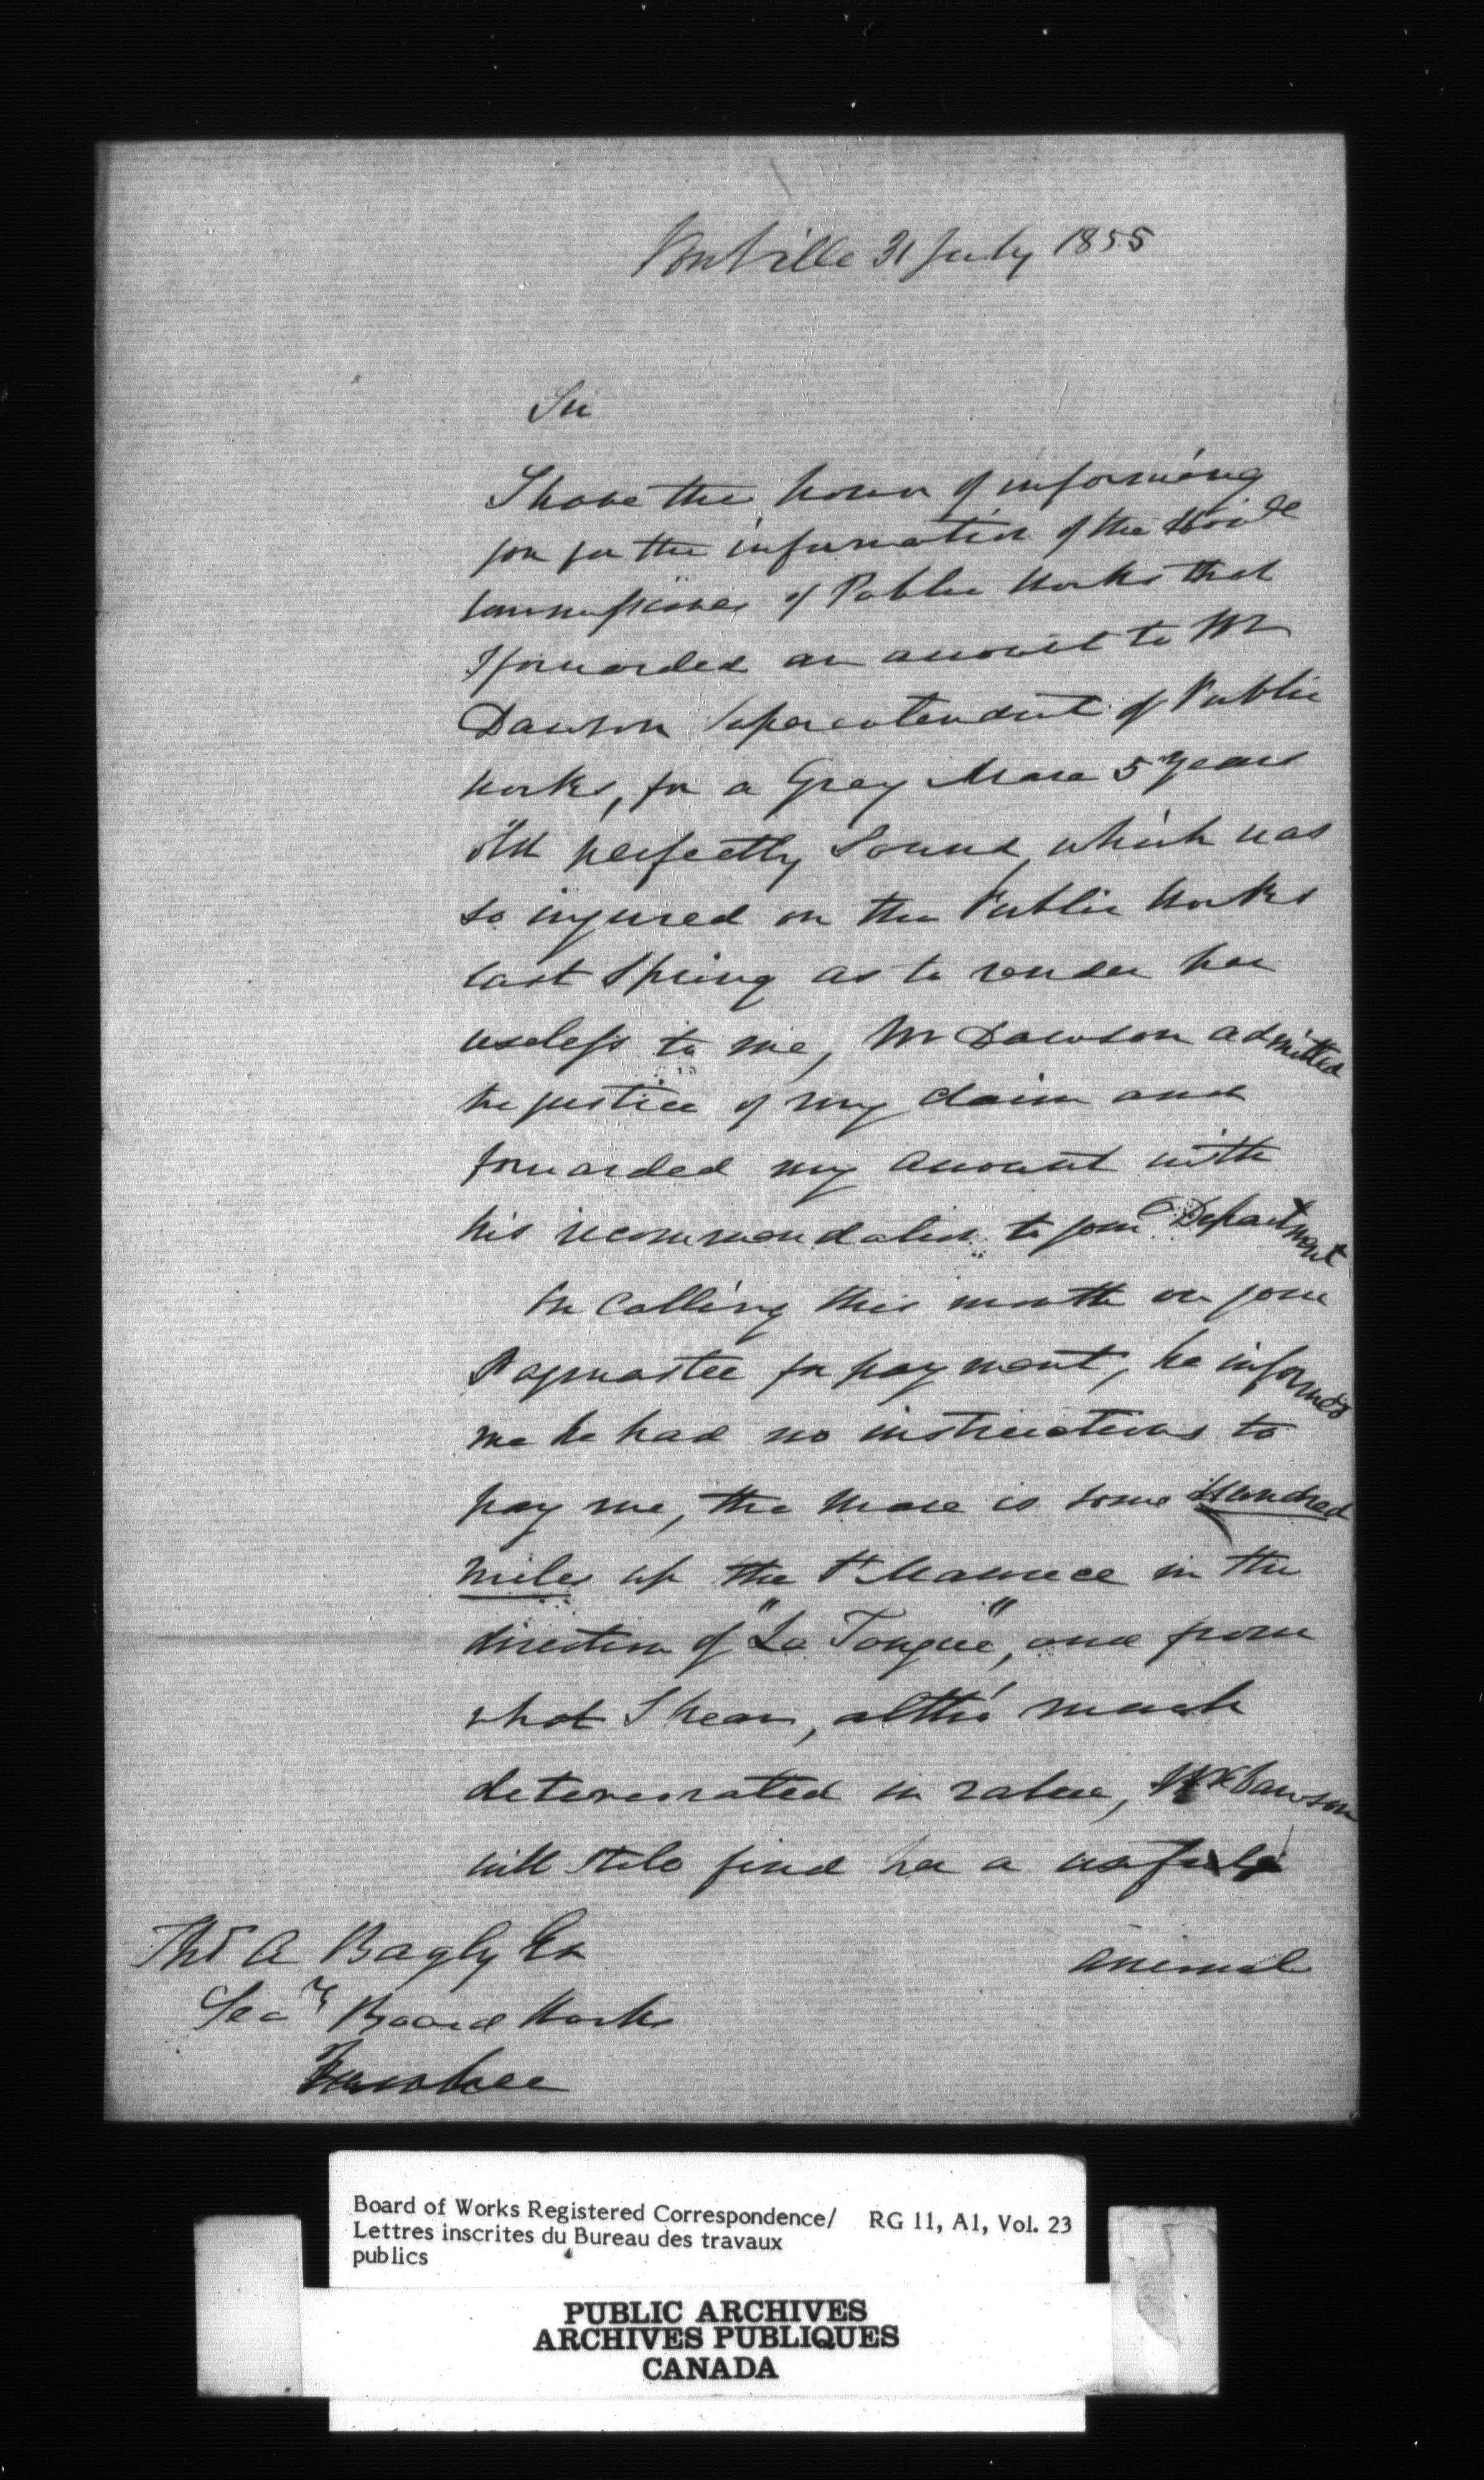 31 July 1855
Sir
I have the honor of informing
you for the information of the Honble
Commissioner of Public Works that
I forwarded an account to Mr
Dawson Superentendent of Public
Works, for a Grey Mare 5 years
old perfectly Sound, which was
so injured on the Public Works
last Spring as to render her
useless to me, Mr Dawson admitted
the justice of my claim and
forwarded my account with
his recommendation to your Department
On Calling this month on your
Paymaster for payment, he informed
me he had no instructions to
pay me, the Mare is some Hundred
miles up the St Maurice in the
direction of "La Tongue", and from
what I hear, altho' much
detereorated in value, Mr Dawson
will still find her a useful
animal
Thos A Bagly Es
Secy Board Works
Board of Works Registered Correspondence/ RG 11, A1, Vol. 23
Lettres inscrites du Bureau des travaux
publics
PUBLIC ARCHIVES
ARCHIVES PUBLIQUES
CANADA